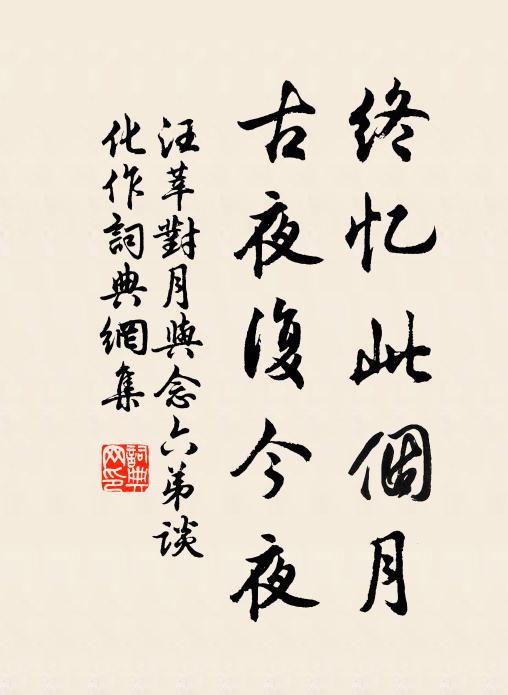 终忆此個月
古夜復今夜
汪莘對月與念六弟談
化作詞典網集
詞典网印